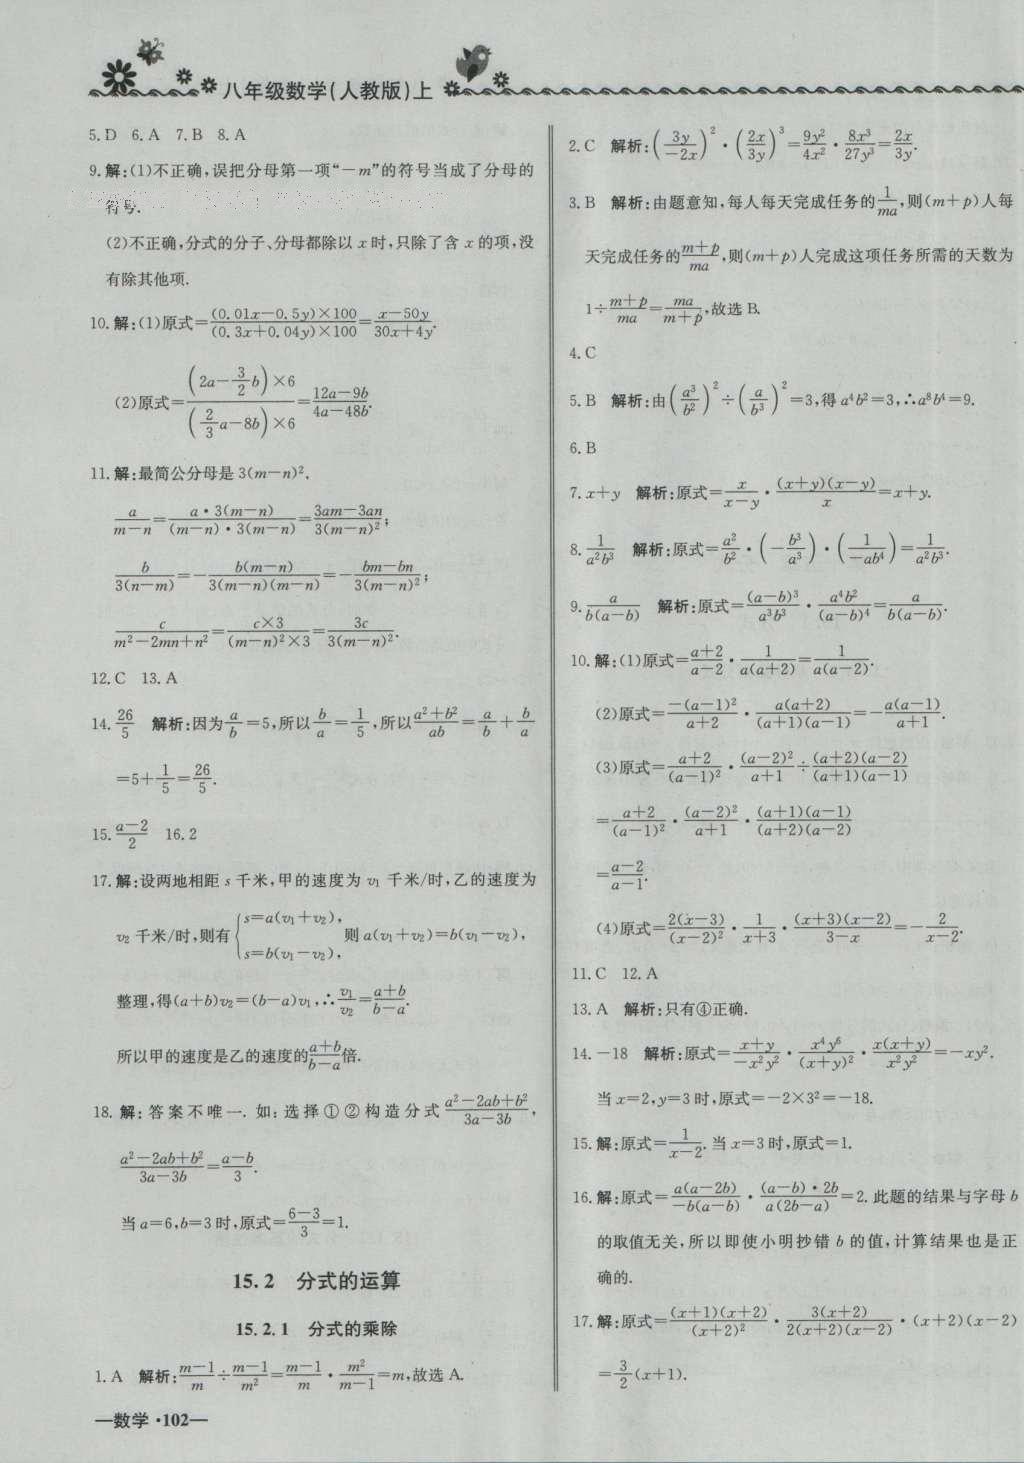 八年级数学(人教版)上
5. D  6. A  7. B  8. A
9. 解:(1)不正确,误把分母第一项“-m”的符号当成了分母的
符号.
(2)不正确,分式的分子、分母都除以 x 时,只除了含 x 的项,没
有除其他项.
10. 解:(1)原式=\frac{(0.01x-0.5y)×100}{(0.3x+0.04y)×100}=\frac{x-50y}{30x+4y}.
(2)原式=\frac{(2a-\frac{3}{2}b)×6}{(\frac{2}{3}a-8b)×6}=\frac{12a-9b}{4a-48b}.
11. 解:最简公分母是 3(m-n)².
\frac{a}{m-n}=\frac{a·3(m-n)}{(m-n)·3(m-n)}=\frac{3am-3an}{3(m-n)²};
\frac{b}{3(n-m)}=-\frac{b(m-n)}{3(m-n)(m-n)}=-\frac{bm-bn}{3(m-n)²};
\frac{c}{m²-2mn+n²}=\frac{c×3}{(m-n)²×3}=\frac{3c}{3(m-n)²}.
12. C  13. A
14. \frac{26}{5}  解析:因为\frac{a}{b}=5,所以\frac{b}{a}=\frac{1}{5},所以\frac{a²+b²}{ab}=\frac{a}{b}+\frac{b}{a}
=5+\frac{1}{5}=\frac{26}{5}.
15. \frac{a-2}{2}  16. 2
17. 解:设两地相距 s 千米,甲的速度为 v₁ 千米/时,乙的速度为
v₂ 千米/时,则有{s=a(v₁+v₂), s=b(v₁-v₂), 则 a(v₁+v₂)=b(v₁-v₂),
整理,得(a+b)v₂=(b-a)v₁,∴\frac{v₁}{v₂}=\frac{a+b}{b-a}.
所以甲的速度是乙的速度的\frac{a+b}{b-a}倍.
18. 解:答案不唯一. 如:选择①②构造分式\frac{a²-2ab+b²}{3a-3b},
\frac{a²-2ab+b²}{3a-3b}=\frac{a-b}{3}.
当 a=6,b=3 时,原式=\frac{6-3}{3}=1.
15.2 分式的运算
15.2.1 分式的乘除
1. A  解析:\frac{m-1}{m}÷\frac{m-1}{m²}=\frac{m-1}{m}·\frac{m²}{m-1}=m,故选 A.
2. C  解析:(\frac{3y}{-2x})²·(\frac{2x}{3y})³=\frac{9y²}{4x²}·\frac{8x³}{27y³}=\frac{2x}{3y}.
3. B  解析:由题意知,每人每天完成任务的\frac{1}{ma},则(m+p)人每
天完成任务的\frac{m+p}{ma},则(m+p)人完成这项任务所需的天数为
1÷\frac{m+p}{ma}=\frac{ma}{m+p},故选 B.
4. C
5. B  解析:由(\frac{a³}{b²})²÷(\frac{a}{b³})²=3,得 a⁴b²=3,∴a⁸b⁴=9.
6. B
7. x+y  解析:原式=\frac{x}{x-y}·\frac{(x+y)(x-y)}{x}=x+y.
8. \frac{1}{a²b³}  解析:原式=\frac{a²}{b²}·(-\frac{b³}{a³})·(\frac{1}{-ab⁴})=\frac{1}{a²b³}.
9. \frac{a}{b(a-b)}  解析:原式=\frac{(a-b)³}{a³b³}·\frac{a⁴b²}{(a-b)⁴}=\frac{a}{b(a-b)}.
10. 解:(1)原式=\frac{a+2}{a-2}·\frac{1}{a(a+2)}=\frac{1}{a(a-2)}.
(2)原式=\frac{-(a-1)²}{a+2}·\frac{a(a+2)}{(a+1)(a-1)}=-\frac{a(a-1)}{a+1}.
(3)原式=\frac{a+2}{(a-1)²}·\frac{(a-2)²}{a+1}÷\frac{(a+2)(a-2)}{(a+1)(a-1)}
=\frac{a+2}{(a-1)²}·\frac{(a-2)²}{a+1}·\frac{(a+1)(a-1)}{(a+2)(a-2)}
=\frac{a-2}{a-1}.
(4)原式=\frac{2(x-3)}{(x-2)²}·\frac{1}{x+3}·\frac{(x+3)(x-2)}{3-x}=-\frac{2}{x-2}.
11. C  12. A
13. A  解析:只有④正确.
14. -18  解析:原式=\frac{x+y}{-x²y²}·\frac{x⁴y⁶}{(x+y)²}·\frac{x(x+y)}{x²y²}=-xy².
当 x=2,y=3 时,原式=-2×3²=-18.
15. 解:原式=\frac{1}{x-2}. 当 x=3 时,原式=1.
16. 解:原式=\frac{a(a-2b)}{-b(a-b)}·\frac{(a-b)·2b}{a(2b-a)}=2. 此题的结果与字母 b
的取值无关,所以即使小明抄错 b 的值,计算结果也是正
确的.
17. 解:原式=\frac{(x+1)(x+2)}{(x+2)²}·\frac{3(x+2)}{2(x+2)(x-2)}·(x+2)(x-2)
=\frac{3}{2}(x+1).
—数学·102—